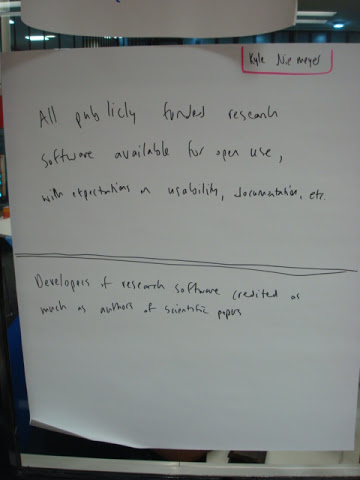 Kyle Niemeyer
All publicly funded research
software available for open use,
with expectations on usability, documentation, etc.
Developers of research software credited as
much as authors of scientific papers